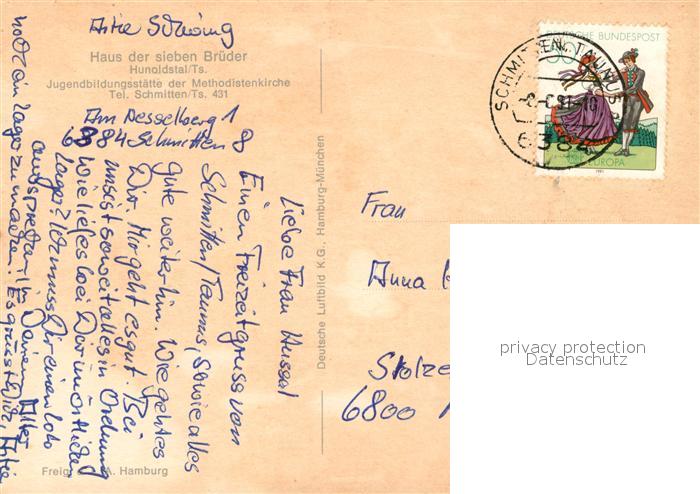 Haus der sieben Brüder
Hunoldstal/Ts.
Jugendbildungsstätte der Methodistenkirche
Tel. Schmitten/Ts. 431
6384 Schmitten 8
Liebe Frau
Einen Freizeitgruss von
Schmitten/Taunus, sowie alles
gute weiterhin. Wie geht es
Dir. Mir geht es gut. Bei
uns ist soweit alles in Ordnung
Wie lief es bei Dir im
Lager? Ich muss Dir ein Lob
aussprechen, In Deinem Alter
noch ein Lager zu machen! Es grüsst Dich,
Deutsche Luftbild K.G., Hamburg-München
Freig. A. Hamburg
DEUTSCHE BUNDESPOST
EUROPA
1981
SCHMITTEN, TAUNUS
6384
Frau
Anna
Stolze
6800
privacy protection
Datenschutz